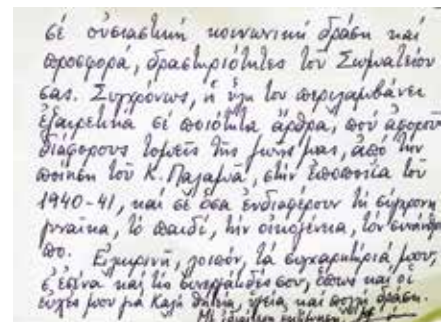 σέ οὐσιαστική κοινωνική δράση καί
προσφορά, δραστηριότητες τοῦ Σωματείου
σας. Συγχρόνως, ἡ ὕλη του περιλαμβάνει
ἐξαιρετικά σέ ποιότητα ἄρθρα, πού ἀφοροῦν
διάφορους τομεῖς τῆς ζωῆς μας, ἀπό τήν
ποίηση τοῦ Κ. Παλαμᾶ, στήν ἐποποιΐα τοῦ
1940-41, καί σέ ὅσα ἐνδιαφέρουν τή σύγχρονη
γυναίκα, τό παιδί, τήν οἰκογένεια, τόν συνάνθρω
πο. Εἰλικρινή, λοιπόν, τά συγχαρητήριά μου,
σ' ἐσένα καί τίς συνεργάτιδές σου, ὅπως καί οἱ
εὐχές μου γιά Καλή θητεία, ὑγεία καί πολλή δράση.
Μέ ἰδιαίτερη ἐκτίμηση